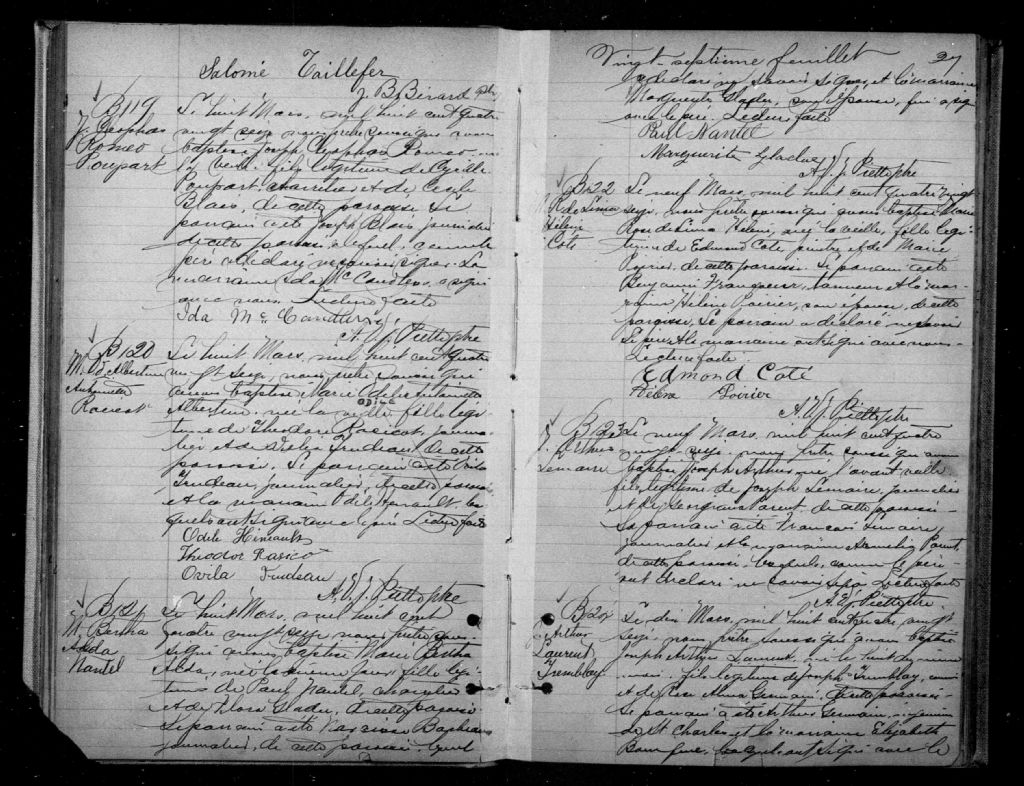 Salomé Taillefer
J. B. Bérard ptre
B119
J. Cléophas
Roméo
Poupart
Le huit Mars, mil huit cent quatre
vingt seize nous prêtre soussigné avons
baptisé Joseph Cléophas Roméo, né
la veille, fils légitime de
Poupart, et de
Blais, de cette paroisse. Le
parrain a été Joseph Blais journalier
de cette paroisse, lequel, comme le
père a déclaré ne pouvoir signer. La
marraine Ida McCandless, a signé
avec nous. Lecture faite
Ida McCandless
A. J. Piette ptre
B120
M. O. Albertine
Antoinette
Le huit Mars, mil huit cent quatre
vingt seize, nous prêtre soussigné
avons baptisé Marie Odélie Antoinette
Albertine, née la veille, fille légi-
time de Théodore Rasicot, journa-
lier et de Trudeau de cette
paroisse. Le parrain a été Ovila
Trudeau, journalier, de cette paroisse
et la marraine Odile Heneault les
quels ont signé avec le père. Lecture faite
Odile Heneault
Theodor Rasico
Ovila Trudeau
A. J. Piette ptre
B121
M. Bertha
Alda
Nantel
Le huit Mars, mil huit cent
quatre vingt seize nous prêtre sous-
signé avons baptisé Marie Bertha
Alda, née le même jour, fille légi-
time de Paul Nantel,
et de Flora Gladu, de cette paroisse
Le parrain a été Narcisse
journalier, de cette paroisse lequel
Vingt-septième feuillet 27
a déclaré ne savoir signer, et la marraine
Marguerite Gladu, son épouse, qui a signé
avec le père. Lecture faite
Paul Nantel
Marguerite Gladue
A. J. Piette ptre
B122
M. R. de Lima
Hélène
Coté
Le neuf Mars, mil huit cent quatre vingt
seize, nous prêtre soussigné avons baptisé Marie
Rose de Lima Hélène, née la veille, fille légi-
time de Edmond Coté, peintre et de Marie
Poirier, de cette paroisse. Le parrain a été
Benjamin Francoeur, et la mar-
raine Hélène Poirier, son épouse, de cette
paroisse. Le parrain a déclaré ne savoir
Le père et la marraine ont signé avec nous.
Lecture faite.
Edmond Coté
Hélène Poirier
A. J. Piette ptre
B123
J. Arthur
Lemaire
Le neuf Mars, mil huit cent quatre
vingt seize, nous prêtre soussigné avons
baptisé Joseph Arthur, né l'avant veille
fils légitime de Joseph Lemaire, journalier
et de Parent, de cette paroisse
Le parrain a été François Lemaire,
journalier et la marraine Parent,
de cette paroisse, lesquels, comme le père
ont déclaré ne savoir signer. Lecture faite
A. J. Piette ptre
B124
J. Arthur
Laurent
Tremblay
Le dix Mars, mil huit cent quatre vingt
seize, nous prêtre soussigné avons baptisé
Joseph Arthur Laurent, né le huit du même
mois, fils légitime de Joseph Tremblay,
et de Anna Germain, de cette paroisse
Le parrain a été Arthur Germain,
de St Charles et la marraine Elizabeth
lesquels ont signé avec le